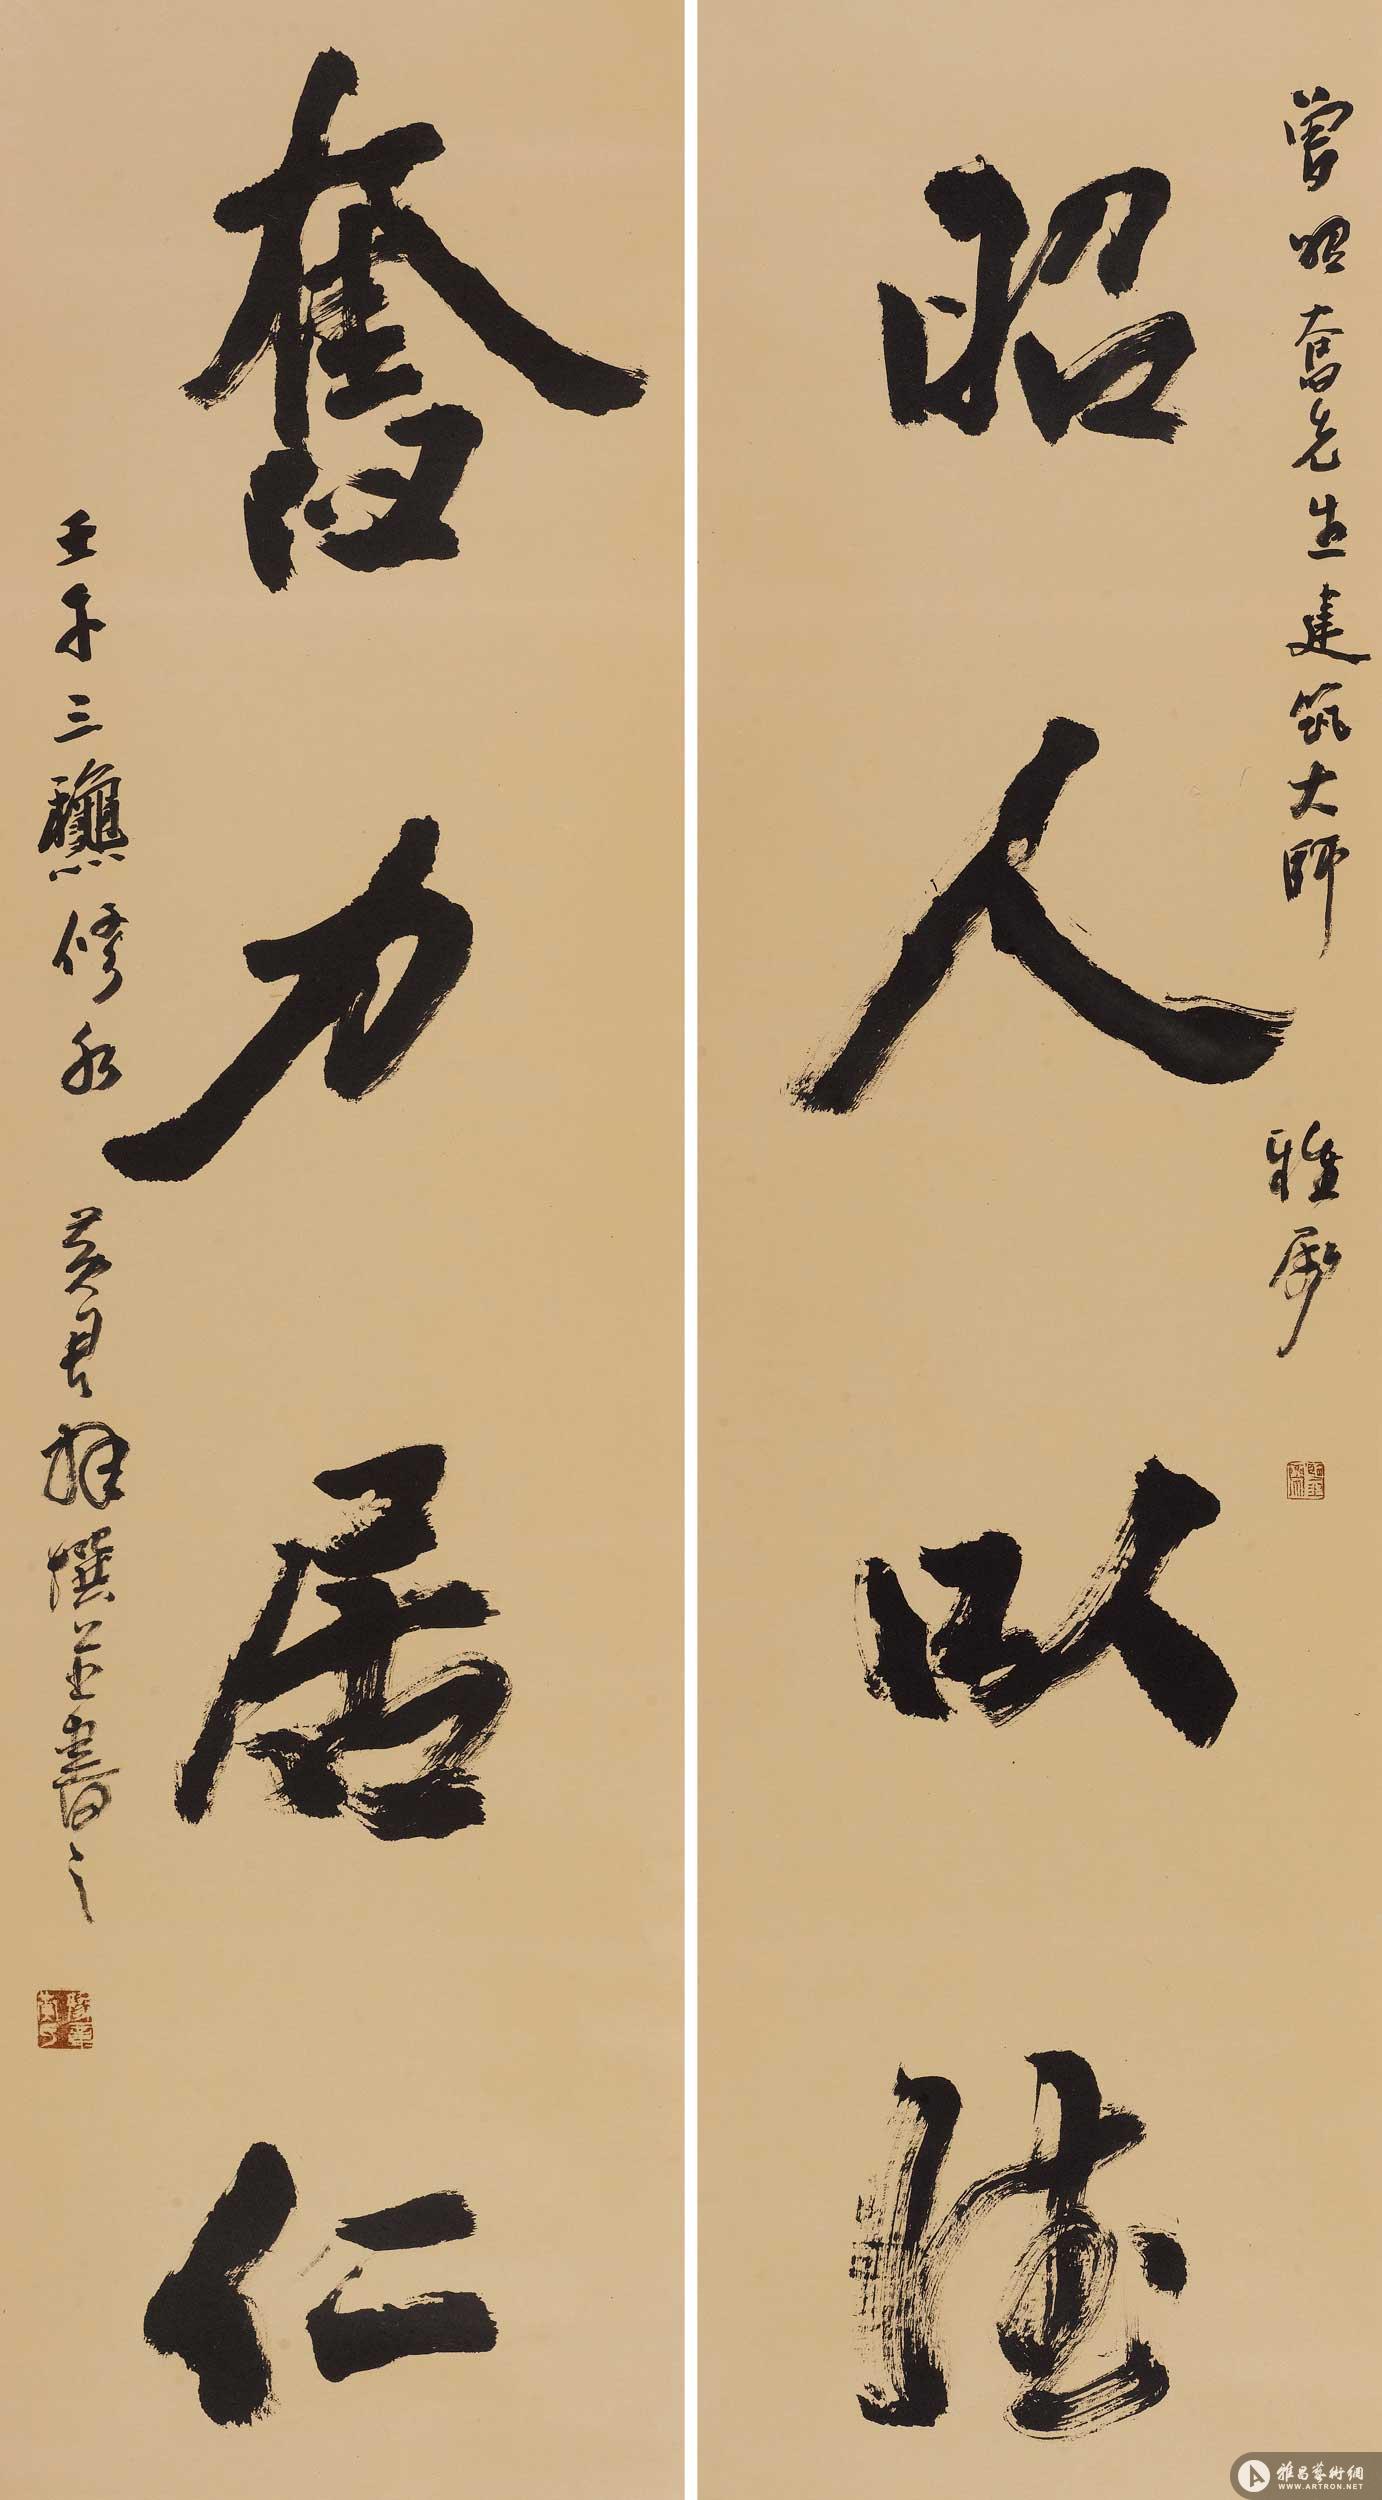 曾昭奮先生建筑大師 雅屬
昭人以德
奮力居仁
壬子三龝修水 黃君拜撰並書之
雅昌藝術網
WWW.ARTRON.NET